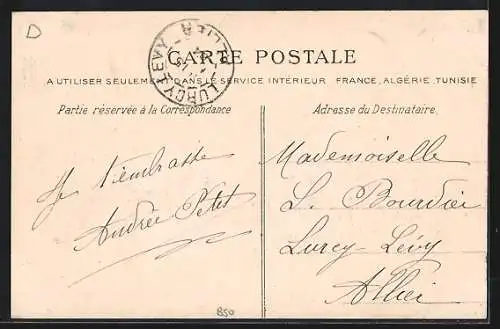 D
LURCY-LEVY
ALLIER
CARTE POSTALE
A UTILISER SEULEMENT DANS LE SERVICE INTÉRIEUR FRANCE, ALGÉRIE, TUNISIE
Partie réservée à la Correspondance
Je t'embrasse
Andrée Petet
Adresse du Destinataire
Mademoiselle
L. Bourdier
Lurcy-Lévy
Allier
850